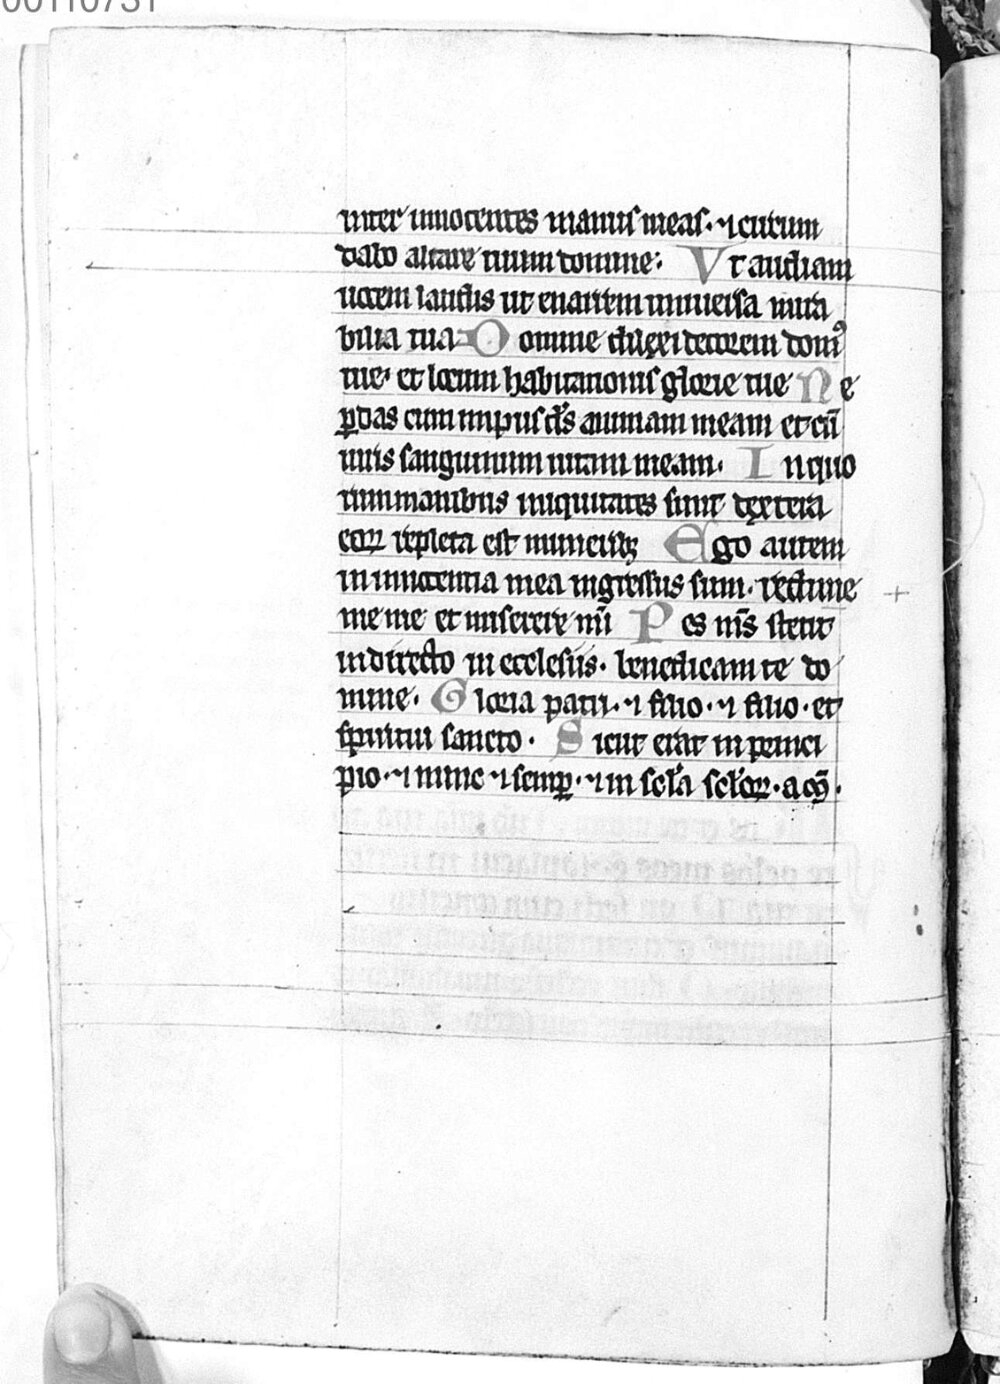 00110731
inter innocentes manus meas · ⁊ circum
dabo altare tuum domine : Vt audiam
uocem laudis ut enarrem uniuersa mira
bilia tua Domine dilexi decorem domꝰ
tue · et locum habitationis glorie tue Ne
ꝑdas cum impiis dˢ animam meam et cū
uiris sanguinum uitam meam · In quo
rum manibus iniquitates sunt dextera
eoꝝ repleta est muneribꝫ Ego autem
in innocentia mea ingressus sum · redime
me me et miserere mī Pes mˢ stetit
in directo in ecclesiis · benedicam te do
mine · Gloria patri · ⁊ filio · ⁊ filio · et
spiritui sancto · Sicut erat in princi
pio · ⁊ nunc ⁊ semꝑ · ⁊ in scl̄a scl̄oꝝ · am̄ ·